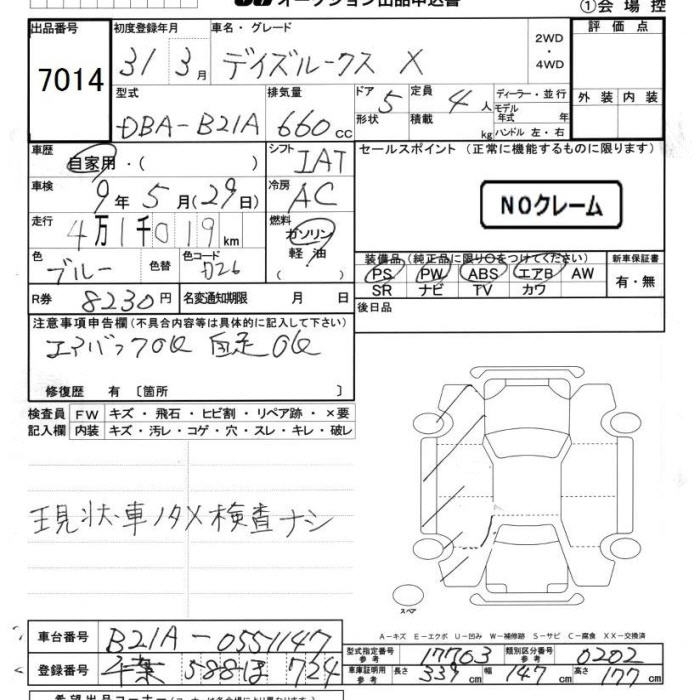 オークション出品申込書
①会場控
出品番号
7014
初度登録年月
31 3月
車名・グレード
デイズルークス X
2WD
・
4WD
評価点
外装 内装
型式
DBA-B21A
排気量
660cc
ドア 5
形状
定員 4人
積載 kg
ディーラー・並行
モデル年式 年
ハンドル 左・右
車歴
自家用・( )
シフト IAT
セールスポイント (正常に機能するものに限ります)
NOクレーム
車検
9年5月(29日)
冷房 AC
走行
4万1千019km
燃料
ガソリン
軽油
( )
色
ブルー
色替
色コード
装備品 (純正品に限り○をつけてください)
PS PW ABS エアB AW
SR ナビ TV カワ
新車保証書
有・無
R券 8230円
名変通知期限 月 日
後日品
注意事項申告欄 (不具合内容等は具体的に記入して下さい)
エアバッグOK 自走OK
修復歴 有 〔箇所 〕
検査員 FW キズ・飛石・ヒビ割・リペア跡・×要
記入欄 内装 キズ・汚レ・コゲ・穴・スレ・キレ・破レ
現状車ノタメ検査ナシ
スペア
A-キズ E-エクボ U-凹み W-補修跡 S-サビ C-腐食 XX-交換済
車台番号 B21A-0551147
登録番号 千葉 588 ほ 724
型式指定番号 参考 17703
類別区分番号 参考 0202
車庫証明用 参考 長さ 339cm 幅 147cm 高さ 177cm